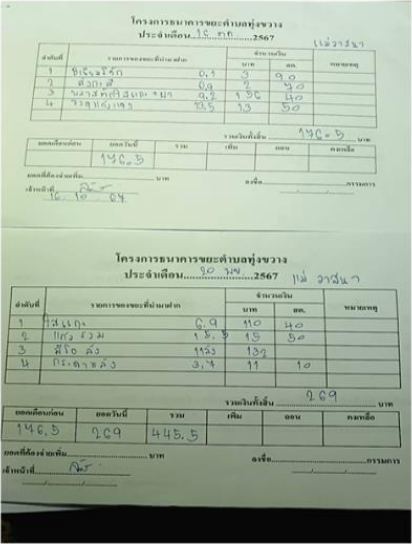 โครงการธนาคารขยะตำบลทุ่งขวาง
ประจำเดือน 16 ตค 2567 แม่วาสนา
ลำดับที่ รายการของขยะที่นำมาฝาก จำนวนเงิน หมายเหตุ
บาท สต.
1 0,1 3 90
2 สังกะสี 0,9 2 70
3 9,2 156 40
4 13,5 13 50
รวมเงินทั้งสิ้น 176.5 บาท
ยอดเดือนก่อน ยอดวันนี้ รวม เพิ่ม ถอน คงเหลือ
176.5
ยอดที่ต้องจ่ายเพิ่ม บาท
เจ้าหน้าที่ ลงชื่อ กรรมการ
16. 10. 67
โครงการธนาคารขยะตำบลทุ่งขวาง
ประจำเดือน 20 พย 2567 แม่ วาสนา
ลำดับที่ รายการของขยะที่นำมาฝาก จำนวนเงิน หมายเหตุ
บาท สต.
1 ใสแกะ 6.9 110 40
2 แก้วรวม 15.5 15 50
3 ลีโอ ลัง 11ลัง 132
4 กระดาษลัง 3,7 11 10
รวมเงินทั้งสิ้น 269 บาท
ยอดเดือนก่อน ยอดวันนี้ รวม เพิ่ม ถอน คงเหลือ
176.5 269 445.5
ยอดที่ต้องจ่ายเพิ่ม บาท ลงชื่อ กรรมการ
เจ้าหน้าที่